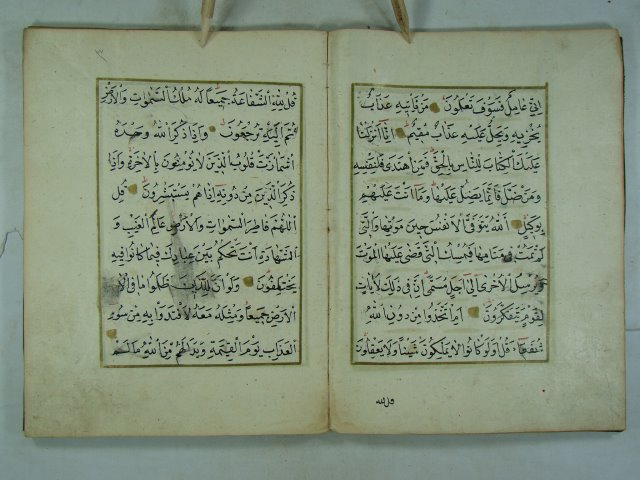 اِنّٖي عَامِلٌ فَسَوْفَ تَعْلَمُونَ مَنْ يَاْتٖيهِ عَذَابٌ
يُخْزٖيهِ وَيَحِلُّ عَلَيْهِ عَذَابٌ مُقٖيمٌ اِنَّا اَنْزَلْنَا
عَلَيْكَ الْكِتَابَ لِلنَّاسِ بِالْحَقِّ فَمَنِ اهْتَدٰى فَلِنَفْسِهٖ
وَمَنْ ضَلَّ فَاِنَّمَا يَضِلُّ عَلَيْهَا وَمَا اَنْتَ عَلَيْهِمْ
بِوَكٖيلٍ اَللّٰهُ يَتَوَفَّى الْاَنْفُسَ حٖينَ مَوْتِهَا وَالَّتٖي
لَمْ تَمُتْ فٖي مَنَامِهَا فَيُمْسِكُ الَّتٖي قَضٰى عَلَيْهَا الْمَوْتَ
وَيُرْسِلُ الْاُخْرٰى اِلٰى اَجَلٍ مُسَمًّى اِنَّ فٖي ذٰلِكَ لَاٰيَاتٍ
لِقَوْمٍ يَتَفَكَّرُونَ اَمِ اتَّخَذُوا مِنْ دُونِ اللّٰهِ
شُفَعَاءَ قُلْ اَوَلَوْ كَانُوا لَا يَمْلِكُونَ شَيْئًا وَلَا يَعْقِلُونَ
قل لله
قُلْ لِلّٰهِ الشَّفَاعَةُ جَمٖيعًا لَهُ مُلْكُ السَّمٰوَاتِ وَالْاَرْضِ
ثُمَّ اِلَيْهِ تُرْجَعُونَ وَاِذَا ذُكِرَ اللّٰهُ وَحْدَهُ
اشْمَاَزَّتْ قُلُوبُ الَّذٖينَ لَا يُؤْمِنُونَ بِالْاٰخِرَةِ وَاِذَا
ذُكِرَ الَّذٖينَ مِنْ دُونِهٖ اِذَا هُمْ يَسْتَبْشِرُونَ قُلِ
اللّٰهُمَّ فَاطِرَ السَّمٰوَاتِ وَالْاَرْضِ عَالِمَ الْغَيْبِ وَ
الشَّهَادَةِ اَنْتَ تَحْكُمُ بَيْنَ عِبَادِكَ فٖيمَا كَانُوا فٖيهِ
يَخْتَلِفُونَ وَلَوْ اَنَّ لِلَّذٖينَ ظَلَمُوا مَا فِي الْا
الْاَرْضِ جَمٖيعًا وَمِثْلَهُ مَعَهُ لَافْتَدَوْا بِهٖ مِنْ سُوءِ
الْعَذَابِ يَوْمَ الْقِيٰمَةِ وَبَدَا لَهُمْ مِنَ اللّٰهِ مَا لَمْ